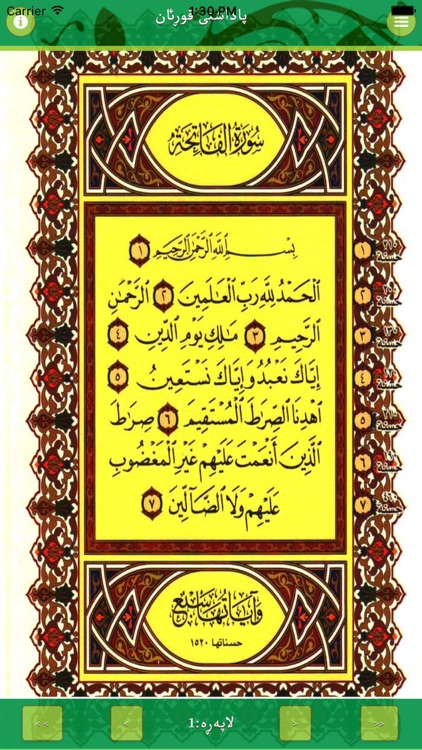 Carrier 1:30 PM
پاداشتی قورئان
سُورَةُ الفَاتِحَةِ
بِسْمِ اللَّهِ الرَّحْمَٰنِ الرَّحِيمِ ١
الْحَمْدُ لِلَّهِ رَبِّ الْعَالَمِينَ ٢ الرَّحْمَٰنِ
الرَّحِيمِ ٣ مَالِكِ يَوْمِ الدِّينِ ٤
إِيَّاكَ نَعْبُدُ وَإِيَّاكَ نَسْتَعِينُ ٥
اهْدِنَا الصِّرَاطَ الْمُسْتَقِيمَ ٦ صِرَاطَ
الَّذِينَ أَنْعَمْتَ عَلَيْهِمْ غَيْرِ الْمَغْضُوبِ
عَلَيْهِمْ وَلَا الضَّالِّينَ ٧
١
٢
٣
٤
٥
٦
٧
وَآيَاتُهَا سَبْعٌ
حسناتها ١٥٢٠
<< < لاپەڕە:1 > >>